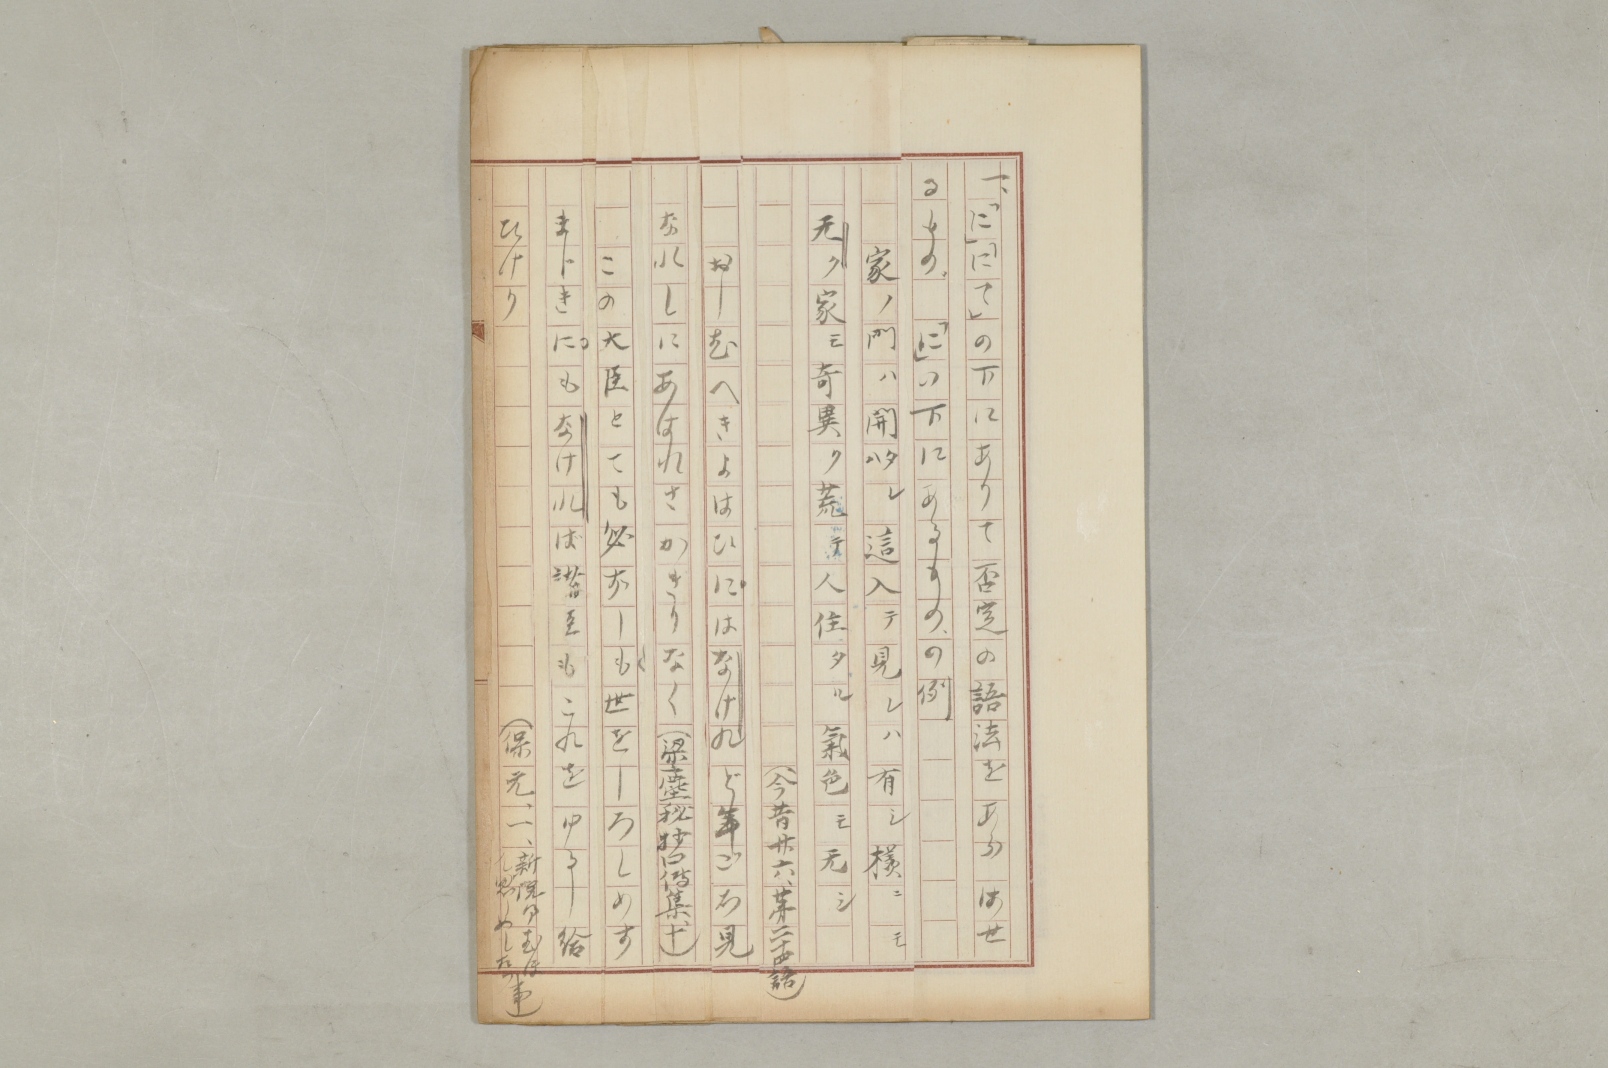 一、「に」「にて」の下にありて否定の語法をあらはせ
るもの、「に」の下にあるもの、の例
家ノ門ハ開タレハ這入テ見レハ有シ様ニモ
无ク家モ奇異ク荒テ人住タル氣色モ无シ
(今昔廿六、第二十四語)
おしむへきよはひにはなけれど年ごろ見
なれしにあはれさかきりなく(梁塵秘抄口傳集、十)
この大臣とても必ずしも世をしろしめす
まじきにもなければ諸臣もこれをゆるし給
ひけり
(保元、一、新院御むほん思めしたつ事)